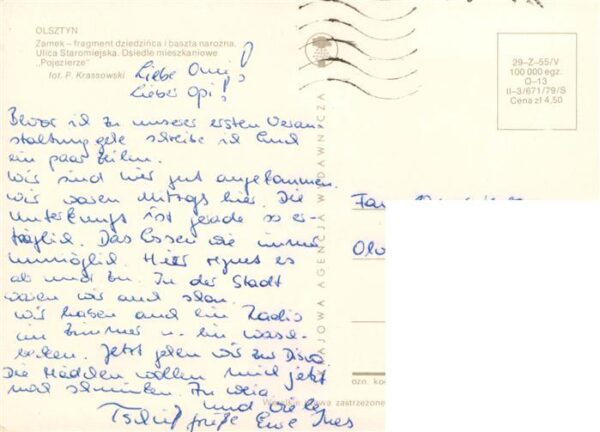 OLSZTYN
Zamek – fragment dziedzińca i baszta narożna.
Ulica Staromiejska. Osiedle mieszkaniowe
„Pojezierze"
fot. P. Krassowski
Liebe Omi!
Lieber Opi!
Bevor ich zu unserer ersten Veran-
staltung gehe schreibe ich Euch
ein paar Zeilen.
Wir sind hier gut angekommen.
Wir waren Mittags hier. Die
Unterkunft ist gerade so er-
träglich. Das Essen wie immer
unmöglich. Hier regnet es
ab und zu. In der Stadt
waren wir auch schon.
Wir haben auch ein Radio
im Zimmer u. ein Wasch-
becken. Jetzt gehen wir zur Disco
Die Mädchen wollen mich jetzt
mal schminken.
und viele
Tschüß Grüße Eure Ines
29-Z-55/V
100 000 egz.
O-13
II-3/671/79/S
Cena zł 4,50
KRAJOWA AGENCJA WYDAWNICZA
ozn. ko
zastrzeżone